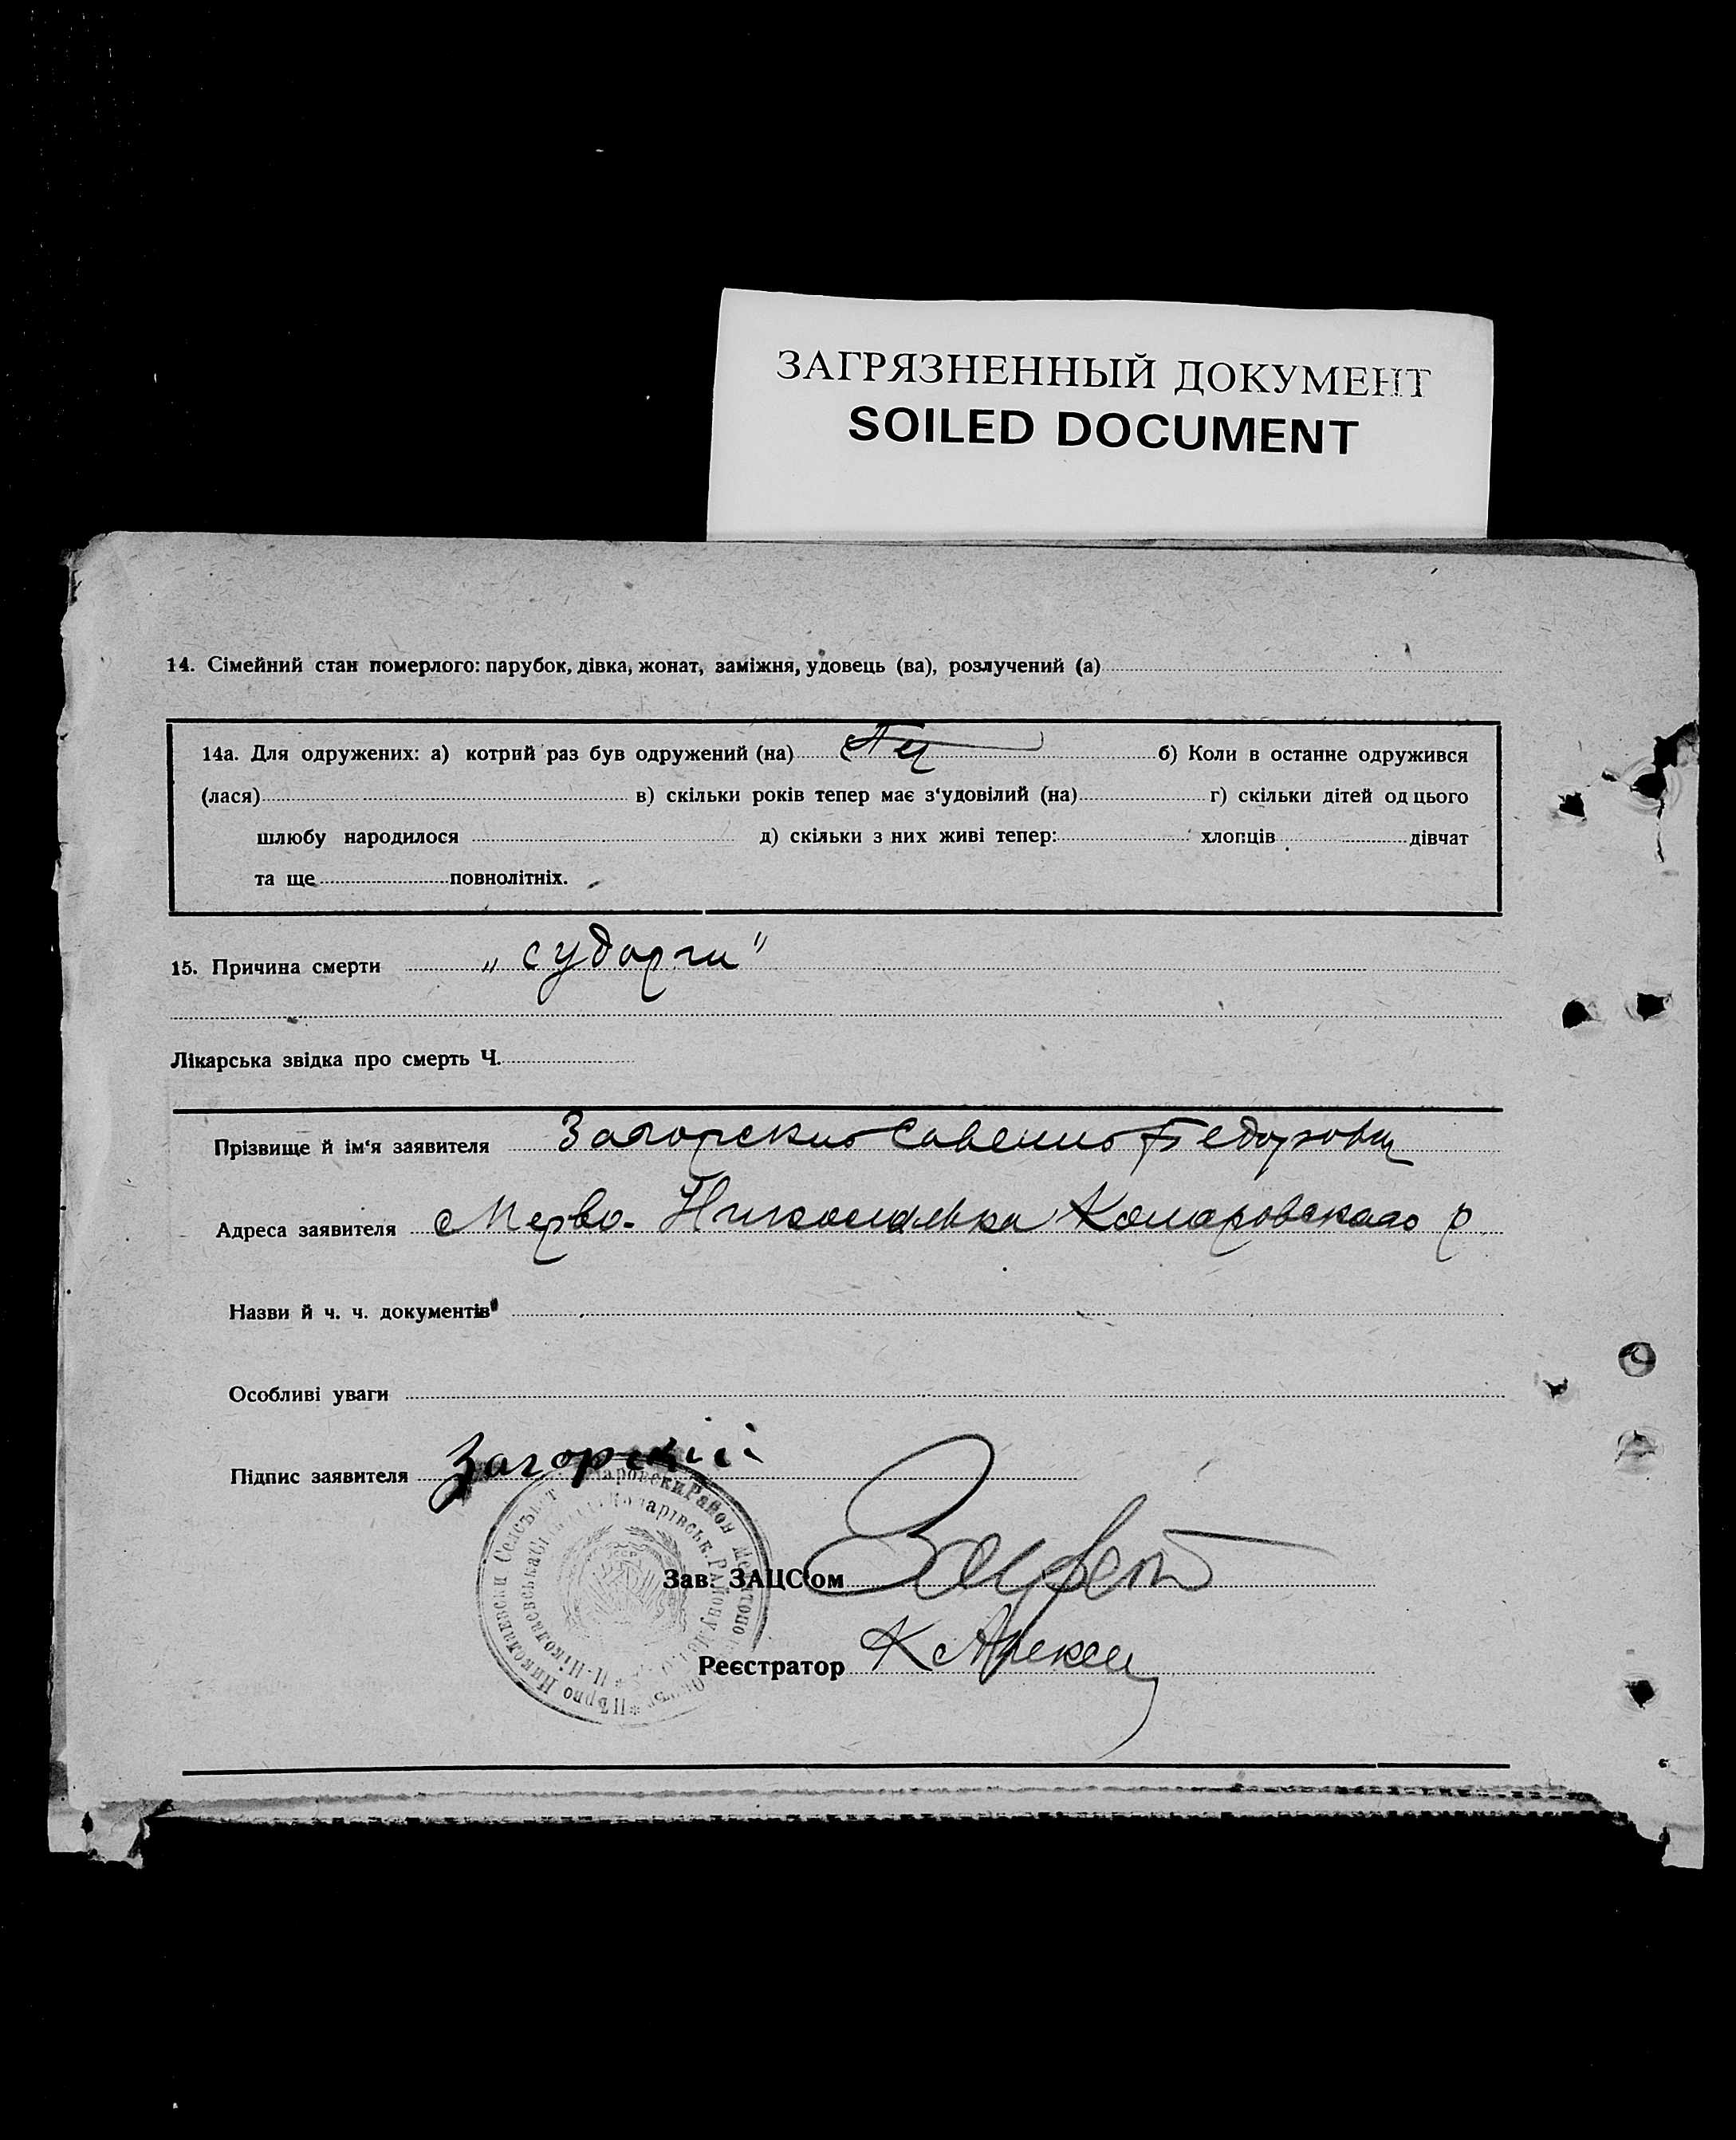 ЗАГРЯЗНЕННЫЙ ДОКУМЕНТ
SOILED DOCUMENT
14. Сімейний стан померлого: парубок, дівка, жонат, заміжня, удовець (ва), розлучений (а)
14а. Для одружених: а) котрий раз був одружений (на) б) Коли в останнє одружився
(лася) в) скільки років тепер має з‘удовілий (на) г) скільки дітей од цього
шлюбу народилося д) скільки з них живі тепер: хлопців дівчат
та ще повнолітніх.
15. Причина смерти „судорги"
Лікарська звідка про смерть Ч.
Прізвище й ім‘я заявителя Загорский
Адреса заявителя Николаевка Комаровского р
Назви й ч. ч. документів
Особливі уваги
Підпис заявителя Загорскій
Зав. ЗАЦС‘ом
Реєстратор